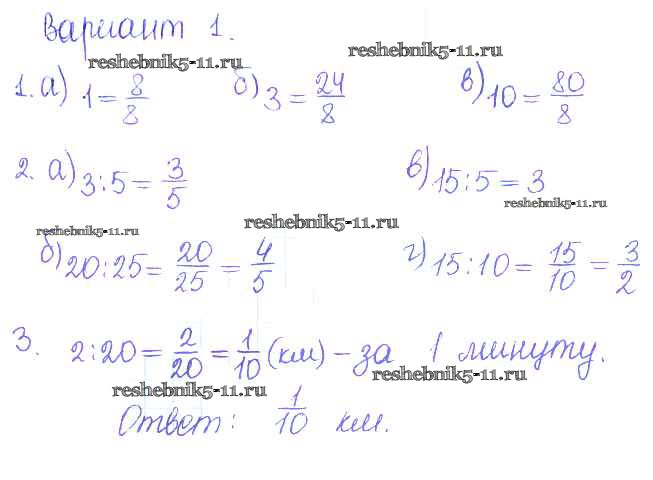 Вариант 1.
reshebnik5-11.ru reshebnik5-11.ru
1. а) 1 = 8/8 б) 3 = 24/8 в) 10 = 80/8
2. а) 3:5 = 3/5 в) 15:5 = 3
reshebnik5-11.ru reshebnik5-11.ru reshebnik5-11.ru
б) 20:25 = 20/25 = 4/5 г) 15:10 = 15/10 = 3/2
3. 2:20 = 2/20 = 1/10 (км) – за 1 минуту.
reshebnik5-11.ru reshebnik5-11.ru
Ответ: 1/10 км.